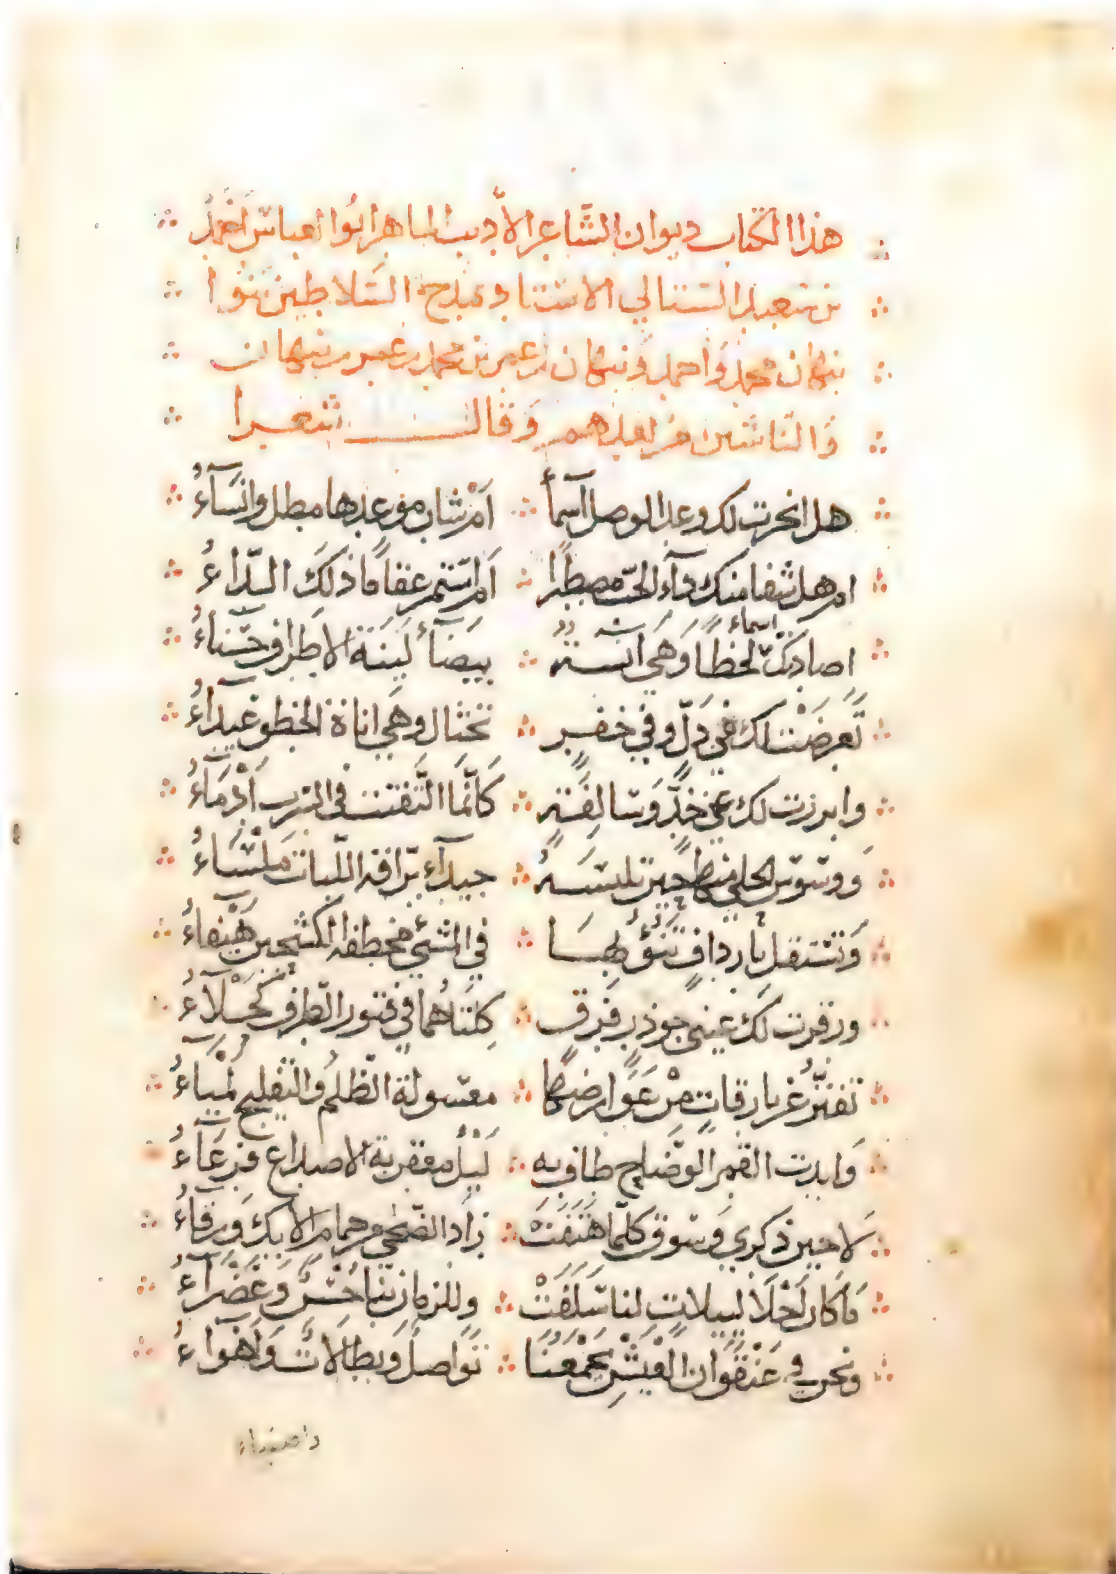 هذا الكتاب ديوان الشاعر الأديب الماهر ابوا العباس احمد
بن سعيد الستالي الاستاد بمدح السلاطين بنوا
نبهان محمد واحمد ونبهان بن عمر بن محمد بن عمر بن نبهان
والناشئين من بعدهم وقال شعرا
هل انجزت لك وعد الوصل اسمآ ∴ ام شان موعدها مطل وانسآءُ
ام هل شفا منك دآء الحب مصطبرا ∴ ام استمر عقاما ذلك الدّاءُ
اصادتك لحظا اسماء وهي آنسة ∴ بيضآء لينة الاطراف حسناءُ
تعرضَتْ لك في دَلّ وفي خفر ∴ تختال وهي اناة الخطو غيدآءُ
وابرزت لك عن خدٍّ وسالفةٍ ∴ كأنّما التفتت في السرب أدْمَآءُ
ووسوس الحلي منها حين تلبسهُ ∴ جيدآء برّاقة اللّبات ملْسَاءُ
وتستقل بارداف تنوُء بها ∴ في المشي مخطفة الكشحين هَيْفاءُ
ورقرقت لك عيني جوذر فرق ∴ كلتاهما في فتور الطّرف كَحْلآءُ
تفترّ عن بارقاتٍ مِنْ عَوارضها ∴ معسولة الظّلم والتفليج لَمْيآءُ
وابدت القمر الوضاح طاف به ∴ ليلٌ معقربة الاصداغ فرعآءُ
لاحين ذكري وشوق كلّما هَتَفَتْ ∴ رأد الضّحى من حمام الايك ورقآءُ
ماكان احْلاَ لييلاتٍ لنا سَلَفَتْ ∴ وللزمان بنا حُسْنٌ وَغَضْرآءُ
ونحن في عنفوان الْعَيْشِ يَجْمَعُنَا ∴ تواصلٌ وبطالاتٌ واهْواءُ